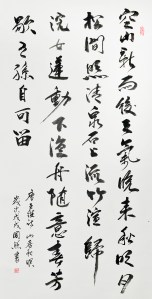 空山新雨後天氣晚來秋明月
松間照清泉石上流竹喧歸
浣女蓮動下漁舟隨意春芳
歇王孫自可留
唐王維詩山居秋暝
歲次戊戌